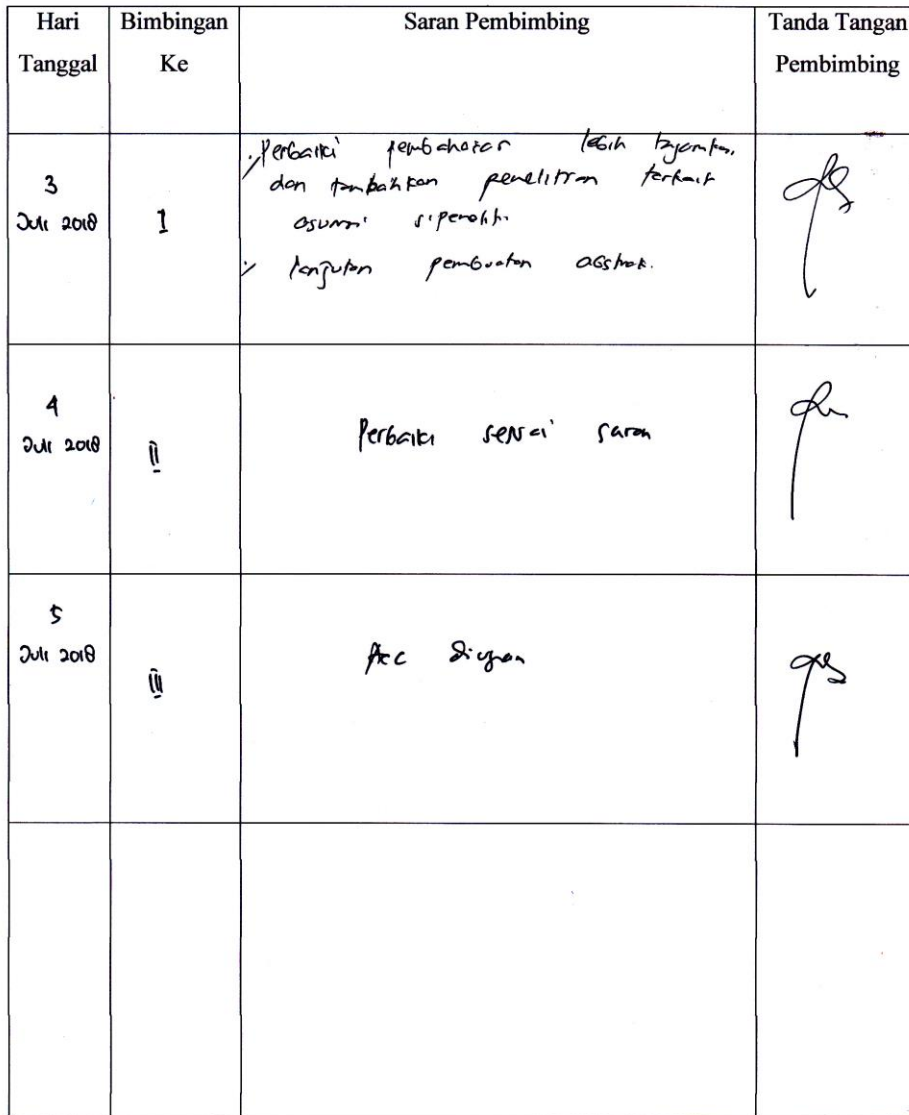 Hari Tanggal
Bimbingan Ke
Saran Pembimbing
Tanda Tangan Pembimbing
3
Juli 2018
I
Perbaiki pembahasan lebih
dan tambahkan penelitian terkait
asumsi sipeneliti
lanjutan pembuatan abstrak.
4
Juli 2018
II
Perbaiki sesuai saran
5
Juli 2018
III
Acc